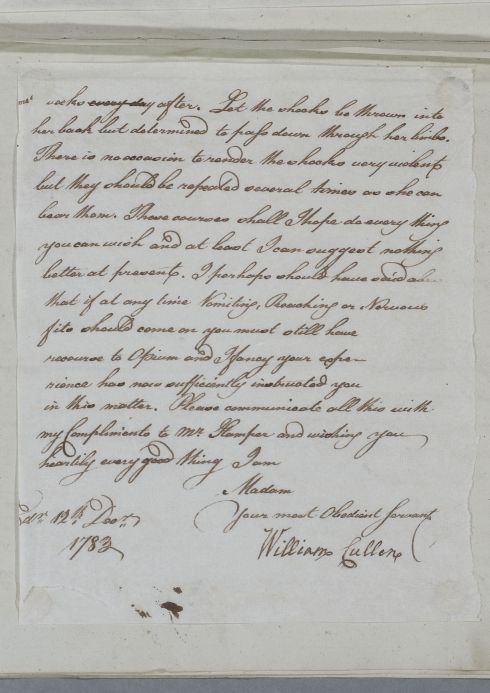 weeks every day after. Let the shocks be thrown into
her back but determined to pass down through her limbs.
There is no occasion to render the shocks very violent
but they should be repeated several times as she can
bear them. These courses shall I hope do every thing
you can wish and at least I can suggest nothing
better at present. I perhaps should have said
that if at any time Vomiting, Reaching or Nervous
fits should come on you must still have
recourse to Opium and I fancy your expe-
rience has now sufficiently instructed you
in this matter. Please communicate all this with
my Compliments to Mr. Kemper and wishing you
heartily every good thing I am
Madam
Your most Obedient Servant
Edr. 12th Decr.
1783
William Cullen